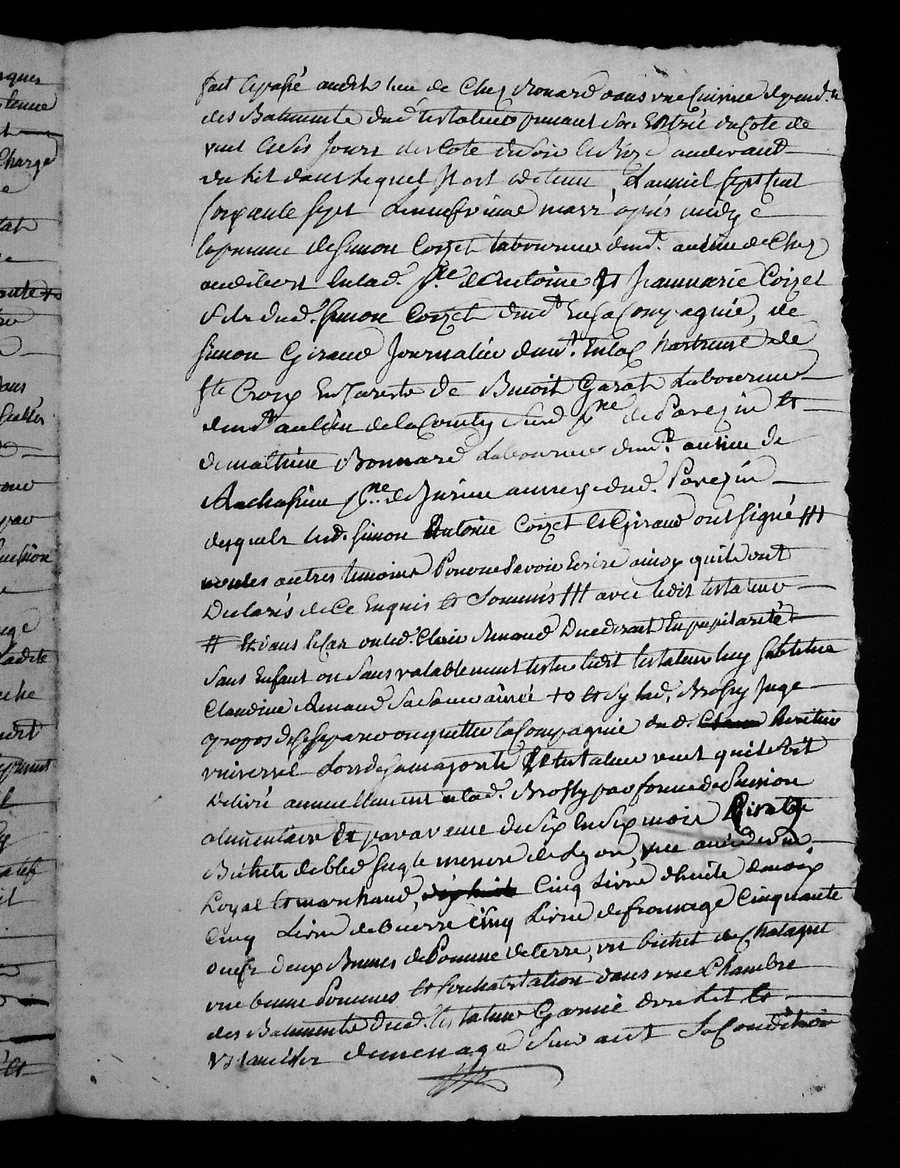 fait et passé audit lieu de Chez Renard dans une Cuisine dépend.te
des Batiments dud. testateur prenant son Entrée du Coté de
vent et ses Jours du Coté du soir et Bize audevant
du lit dans lequel il est detenu, L'an mil sept cent
soixante sept le neufvieme mars après midy
presence de Simon Coizet laboureur dem.t au lieu de Chez
audibert En lad. p.sse d'Antoine et Jean marie Coizet
fils dud. Simon Coizet dem.t En sa Compagnie, de
Simon Giraud Journalier dem.t En la Chartreuse de
Ste Croix En Jarest de Benoit Garat Laboureur
dem.t au lieu de la Conty sur de Pavezin et
de mathieu Bonnard Laboureur dem.t au lieu de
annexe dud. Pavezin
desquels led. Simon Antoine Coizet et Giraud ont signé ///
non les autres temoins Pour ne savoir Ecrire ainsy qu'ils ont
Declarés de Ce Enquis et Sommés /// avec ledit testateur
# Et dans le Cas ou led. Claire Renaud Decederait En pupilarité
Sans Enfant ou Sans valablement tester ledit testateur luy substitue
Claudine Renaud sa soeur ainée +o et sy lad. Brossy Juge
apropos de se separer ou quitter la Compagnie dud. heritier
universel Lors de sa majorité le testateur veut qu'il soit
Delivré annuellement a lad. Brossy par forme de Pension
alimentaire Et par avance de Six En Six mois
Bichets de bled seigle mesure de Lyon, une anée de vin
Loyal et marchand, Cinq Livre d'huile de noix
Cinq Livre de Beurre Cinq Livre de fromage Cinquante
oeufs deux Bennes de Pomme de terre, un bichet de Chataigne
une benne Pommes et son habitation dans une Chambre
des Batiments dud. testateur Garnie d'un lit et
Ustancilles de menage Suivant Sa Condition